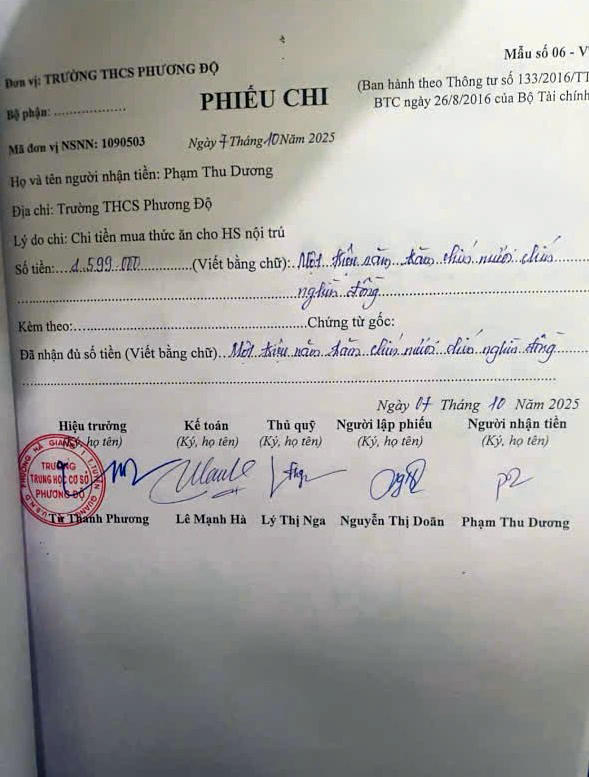 Mẫu số 06 - V
Đơn vị: TRƯỜNG THCS PHƯƠNG ĐỘ
(Ban hành theo Thông tư số 133/2016/TT
Bộ phận: ..................
PHIẾU CHI
BTC ngày 26/8/2016 của Bộ Tài chính
Mã đơn vị NSNN: 1090503
Ngày 7 Tháng 10 Năm 2025
Họ và tên người nhận tiền: Phạm Thu Dương
Địa chỉ: Trường THCS Phương Độ
Lý do chi: Chi tiền mua thức ăn cho HS nội trú
Số tiền:...1.599.000...(Viết bằng chữ): Một triệu năm trăm chín mươi chín
nghìn đồng
Kèm theo:...Chứng từ gốc:
Đã nhận đủ số tiền (Viết bằng chữ)...Một triệu năm trăm chín mươi chín nghìn đồng
Ngày 07 Tháng 10 Năm 2025
Hiệu trưởng Kế toán Thủ quỹ Người lập phiếu Người nhận tiền
(Ký, họ tên) (Ký, họ tên) (Ký, họ tên) (Ký, họ tên) (Ký, họ tên)
TRƯỜNG
TRUNG HỌC CƠ SỞ
PHƯƠNG ĐỘ
Từ Thanh Phương Lê Mạnh Hà Lý Thị Nga Nguyễn Thị Doãn Phạm Thu Dương